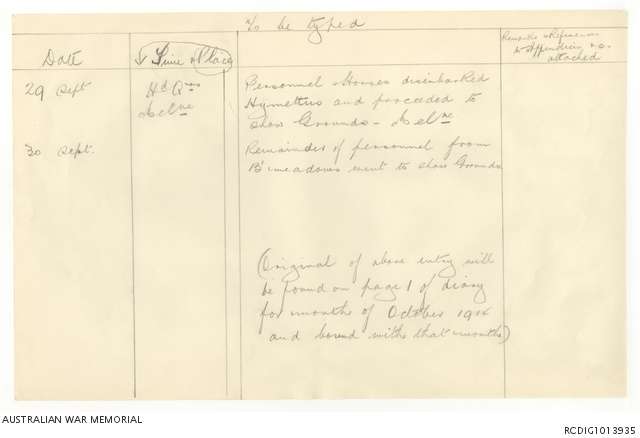 To be typed
Date
↓ Time & Place
Remarks & References
to Appendices &c.
attached
29 Sept
Hd Qrs
Melne
Personnel & Horses disembarked
Hymettus and proceeded to
Show Grounds - Melne
30 Sept.
Remainder of personnel from
B'meadows went to Show Grounds
(Original of above entry will
be found on page 1 of diary
for months of October 1914
and bound with that months)
AUSTRALIAN WAR MEMORIAL
RCDIG1013935